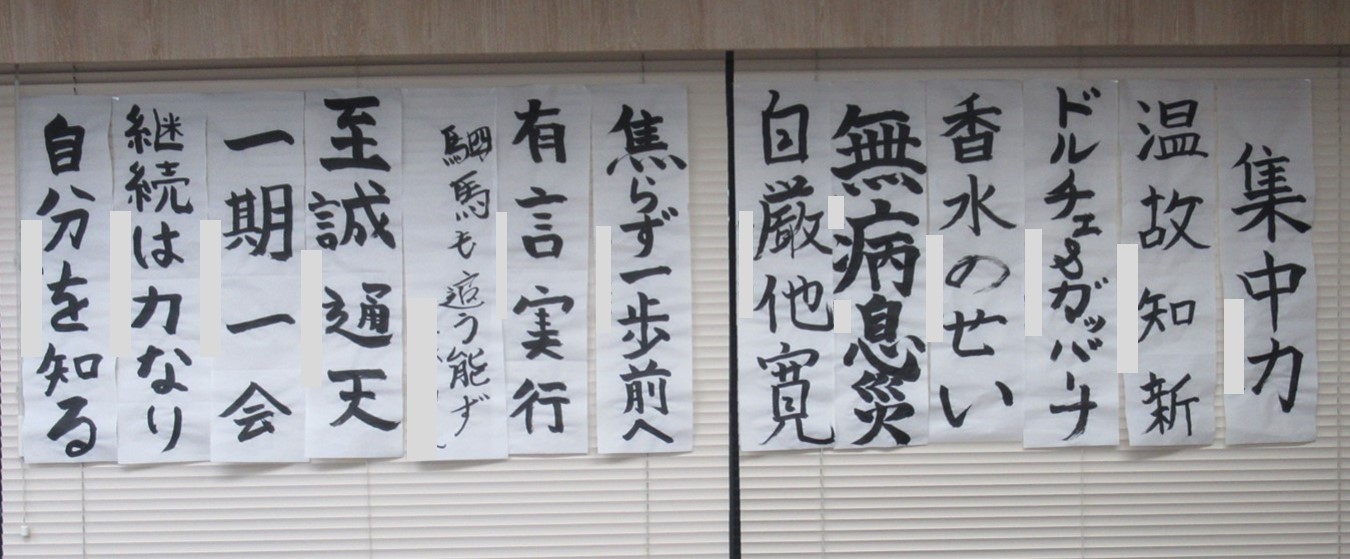 集中力
温故知新
ドルチェ&ガッバーナ
香水のせい
無病息災
自厳他寛
焦らず一歩前へ
有言実行
駟馬も追う能ず
至誠通天
一期一会
継続は力なり
自分を知る